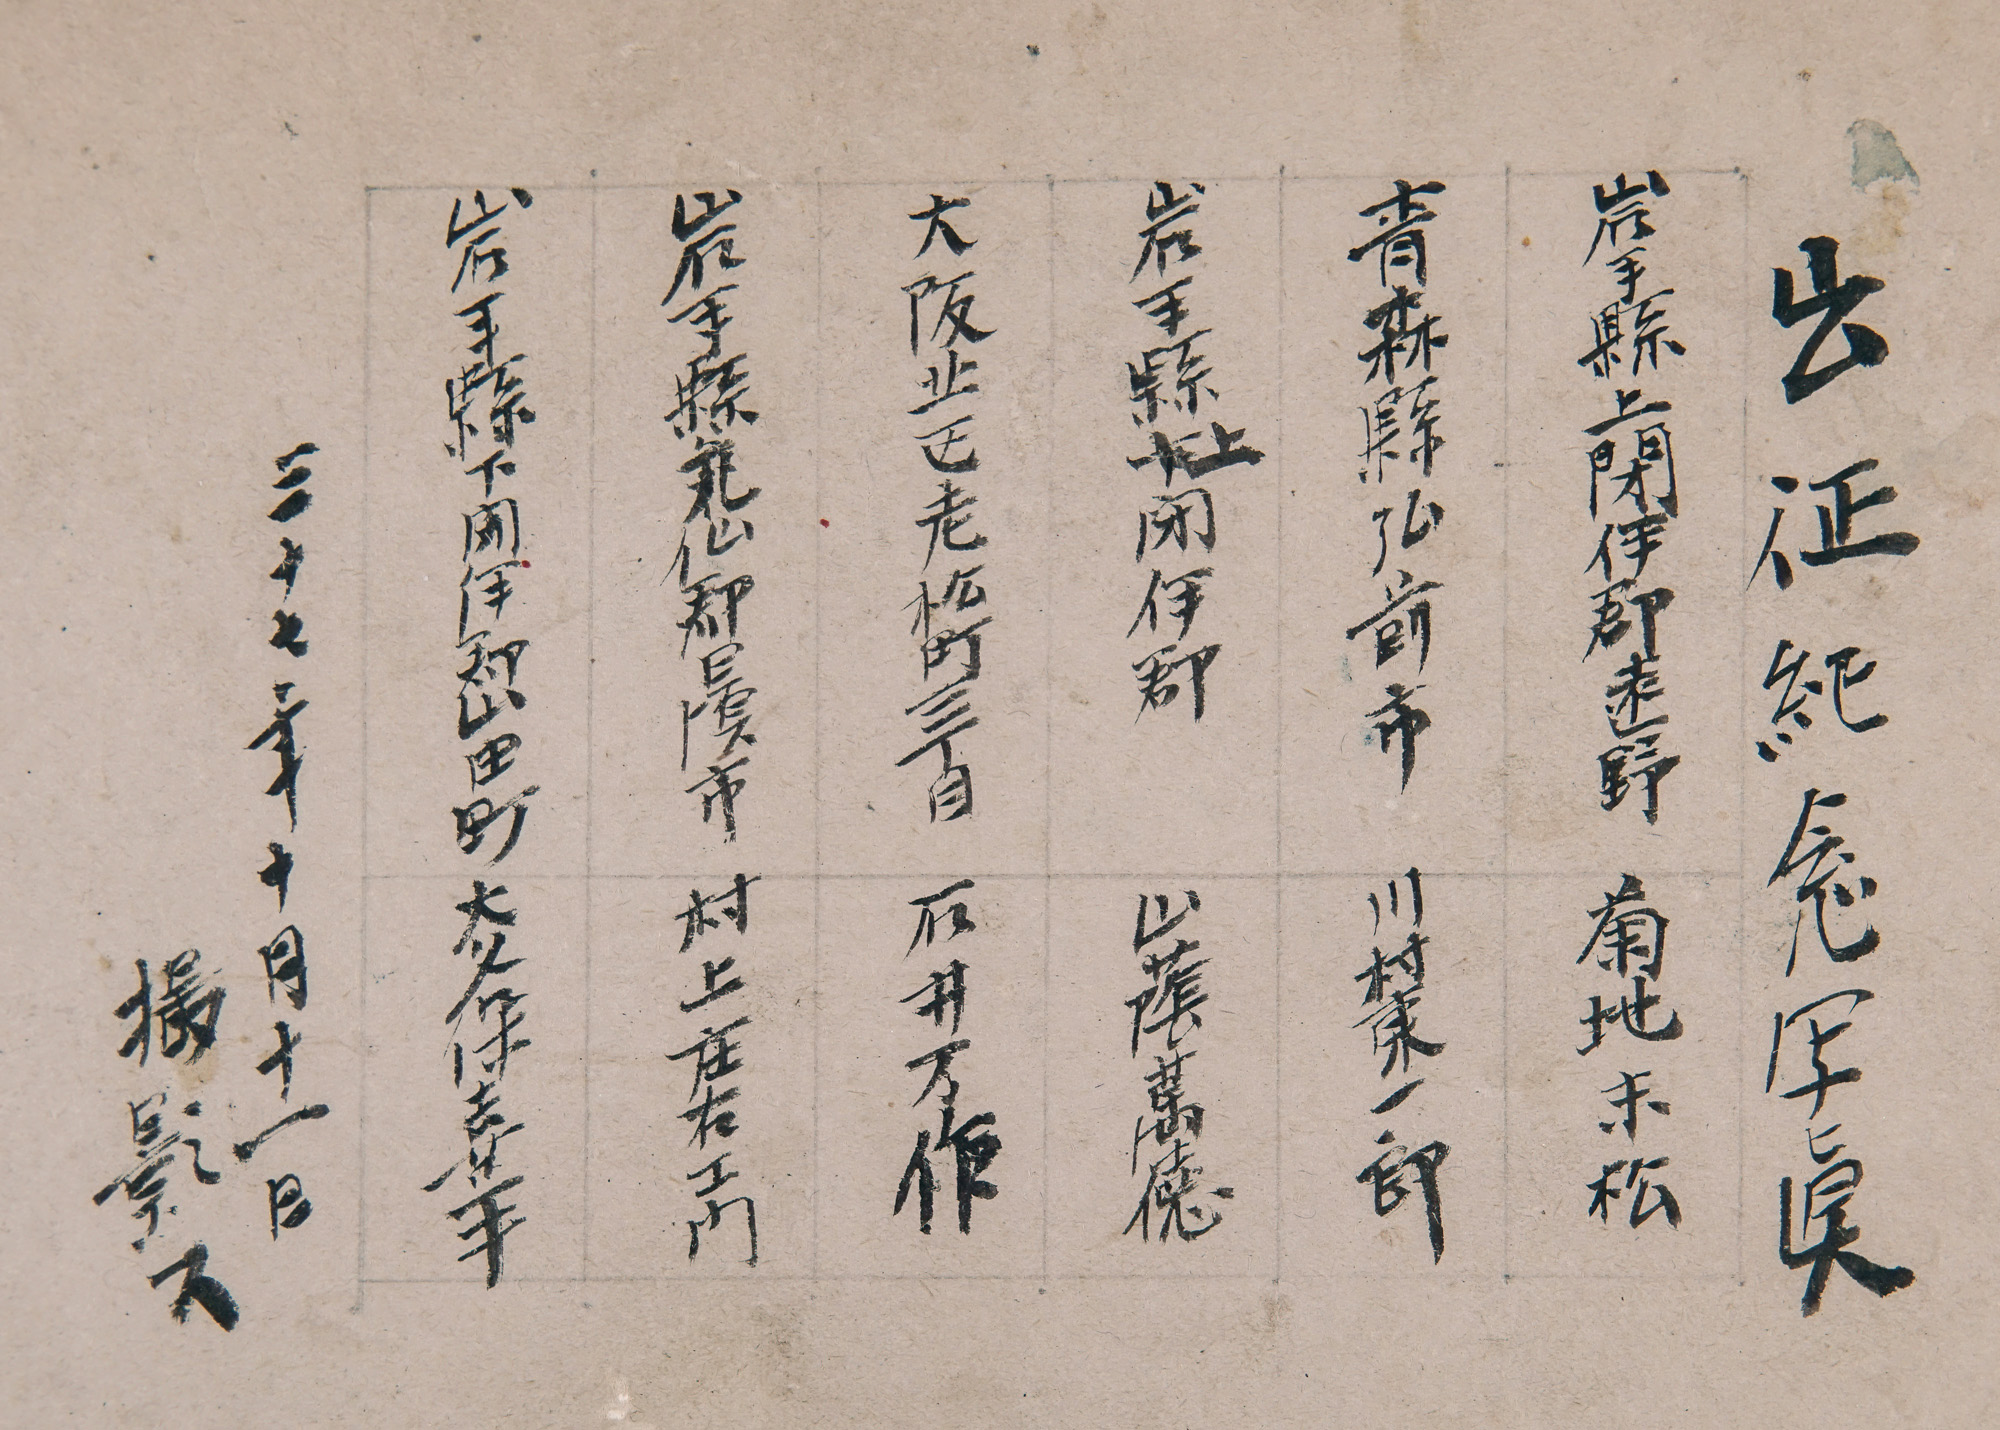 出征紀念写眞
岩手縣上閉伊郡遠野 菊地末松
青森縣弘前市 川村東一郎
岩手縣上閉伊郡 山蔭萬德
大阪北区老松町三丁目 石井万作
岩手縣気仙郡 市 村上庄右エ門
岩手縣下閉伊郡山田町 大久保吉平
三十七年十月十一日
撮影ス